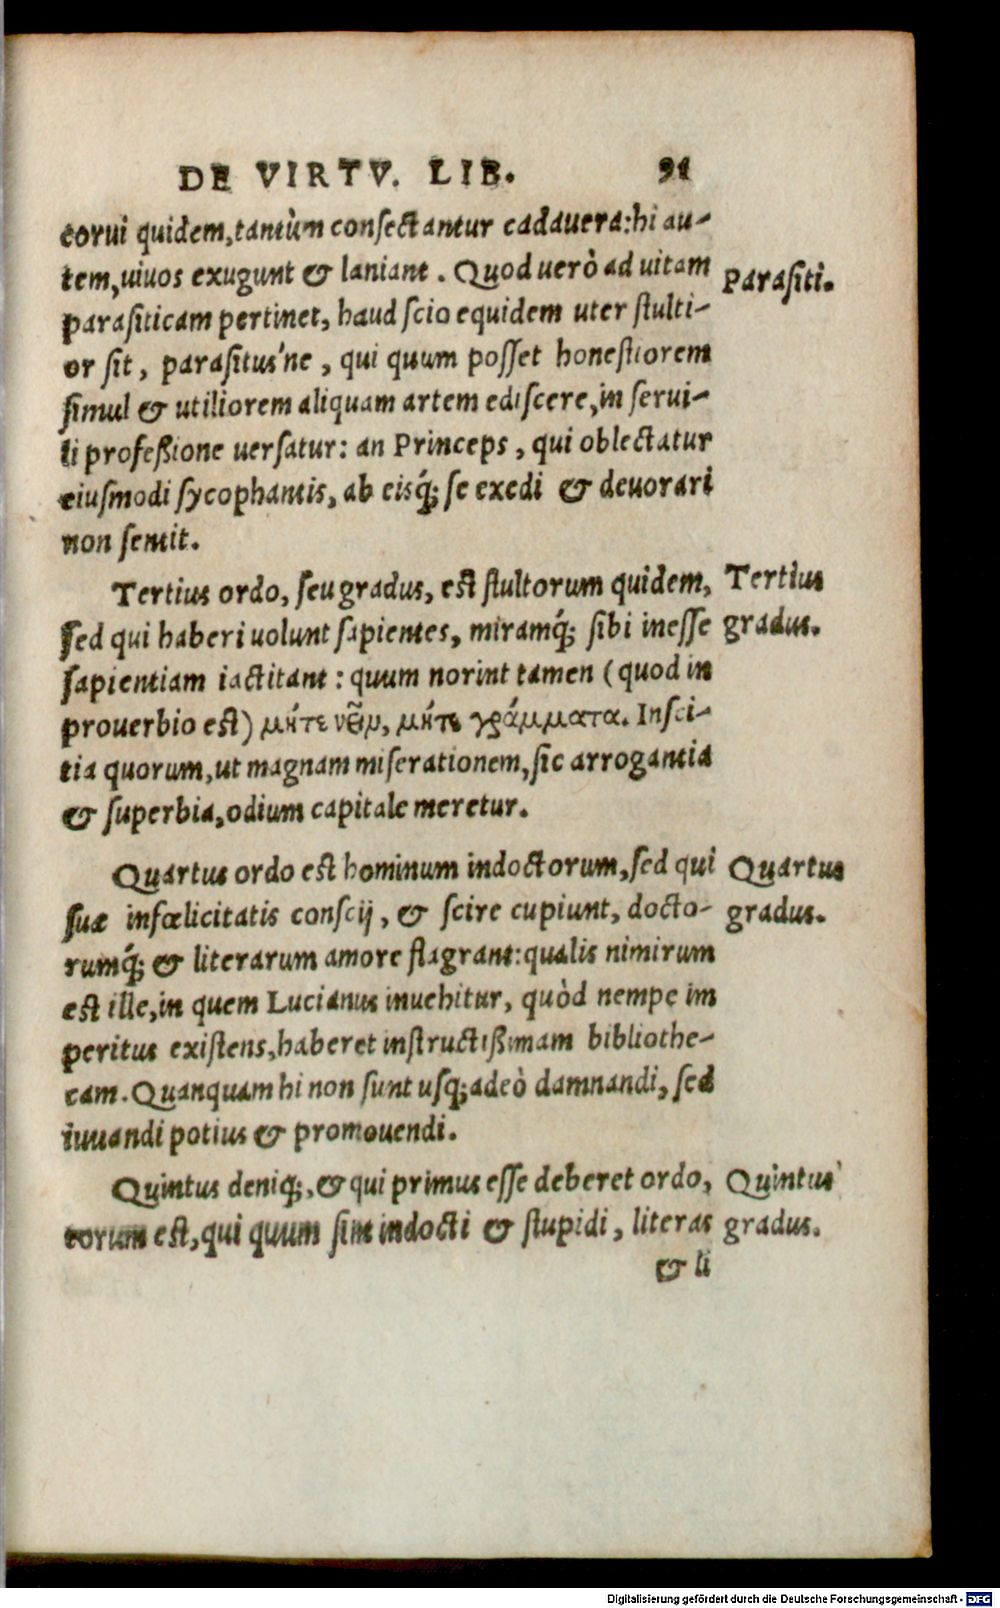 DE VIRTV. LIB. 91
corui quidem, tantùm consectantur cadauera: hi au-
tem, uiuos exugunt & laniant. Quod uerò ad uitam
Parasiti.
parasiticam pertinet, haud scio equidem uter stulti-
or sit, parasitus'ne, qui quum posset honestiorem
simul & utiliorem aliquam artem ediscere, in serui-
li profeßione uersatur: an Princeps, qui oblectatur
eiusmodi sycophantis, ab eisq́; se exedi & deuorari
non sentit.
Tertius ordo, seu gradus, est stultorum quidem,
Tertius
sed qui haberi uolunt sapientes, miramq́; sibi inesse
gradus.
sapientiam iactitant: quum norint tamen (quod in
prouerbio est) μήτε νεῖν, μήτε γράμματα. Insci-
tia quorum, ut magnam miserationem, sic arrogantia
& superbia, odium capitale meretur.
Quartus ordo est hominum indoctorum, sed qui
Quartus
suæ infœlicitatis conscij, & scire cupiunt, docto-
gradus.
rumq́; & literarum amore flagrant: qualis nimirum
est ille, in quem Lucianus inuehitur, quòd nempe im
peritus existens, haberet instructißimam bibliothe-
cam. Quanquam hi non sunt usq; adeò damnandi, sed
iuuandi potius & promouendi.
Quintus deniq;, & qui primus esse deberet ordo,
Quintus
eorum est, qui quum sint indocti & stupidi, literas
gradus.
& li
Digitalisierung gefördert durch die Deutsche Forschungsgemeinschaft - DFG